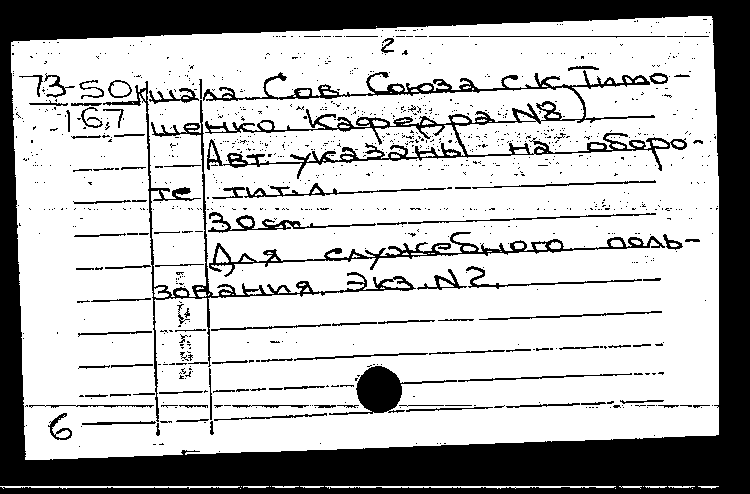 2.
73-50к шала Сов. Союза С.К. Тимо-
167 шенко. Кафедра №8).
Авт. указаны на оборо-
те тит. л.
30 см.
Для служебного поль-
зования. Экз. №2.
6